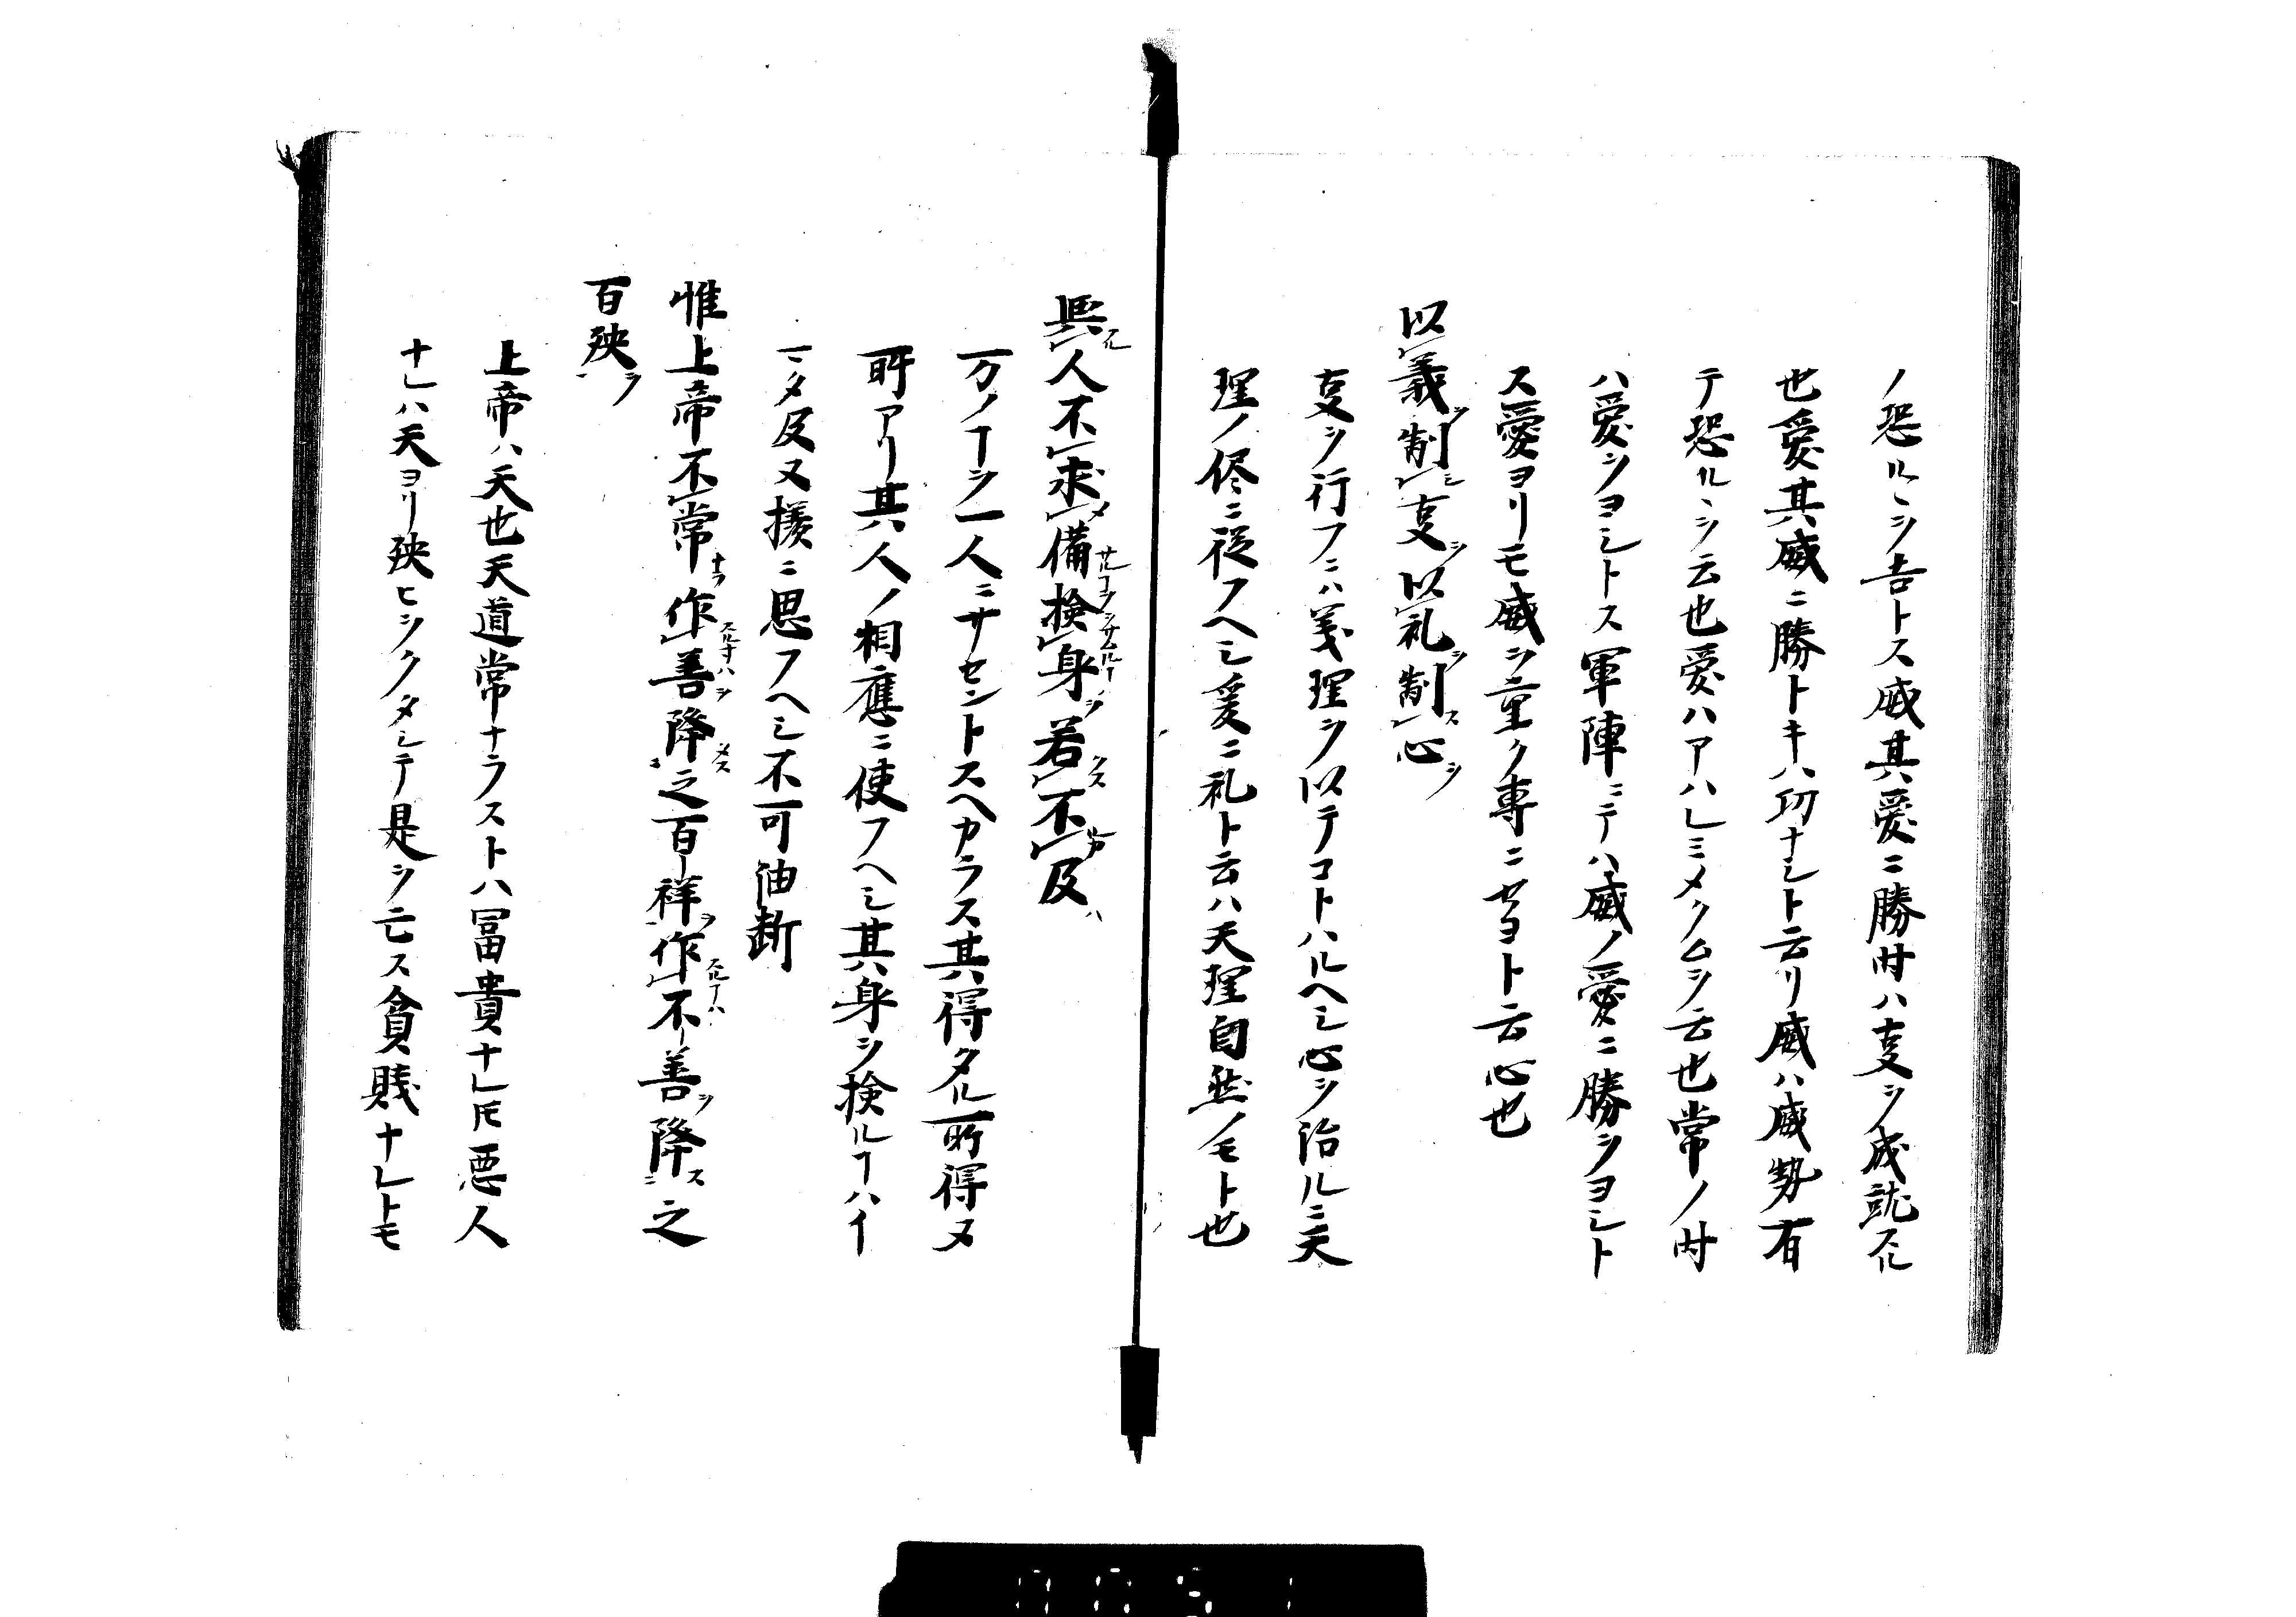 ノ恐ルヽヲ吉トス威其愛ニ勝時ハ事ヲ成就スル
也愛其威ニ勝トキハ功ナシト云リ威ハ威勢有
テ恐ルヽヲ云也愛ハアハレミメクムヲ云也常ノ時
ハ愛ヲヨシトス軍陣ニテハ威ノ愛ニ勝ヲヨシト
ス愛ヨリモ威ヲ重ク専ニセヨト云心也
以義制事以礼制心
事ヲ行フニハ義理ヲ以テコトハルヘシ心ヲ治ルニ天
理ノ侭ニ従フヘシ爰ニ礼ト云ハ天理自然ノモト也
與人不求備検身若不及
一万ノヿヲ一人ニサセントスヘカラス其得タル所得ヌ
所アリ其人ノ相應ニ使フヘシ其身ヲ検ルヿハイ
マタ及又様ニ思フヘシ不可油断
惟上帝不常作善降之百祥作不善降之
百殃
上帝ハ天也天道常ナラストハ冨貴ナレ𪜈悪人
ナレハ天ヨリ殃ヒヲクタシテ是ヲ亡ス貧賎ナレトモ